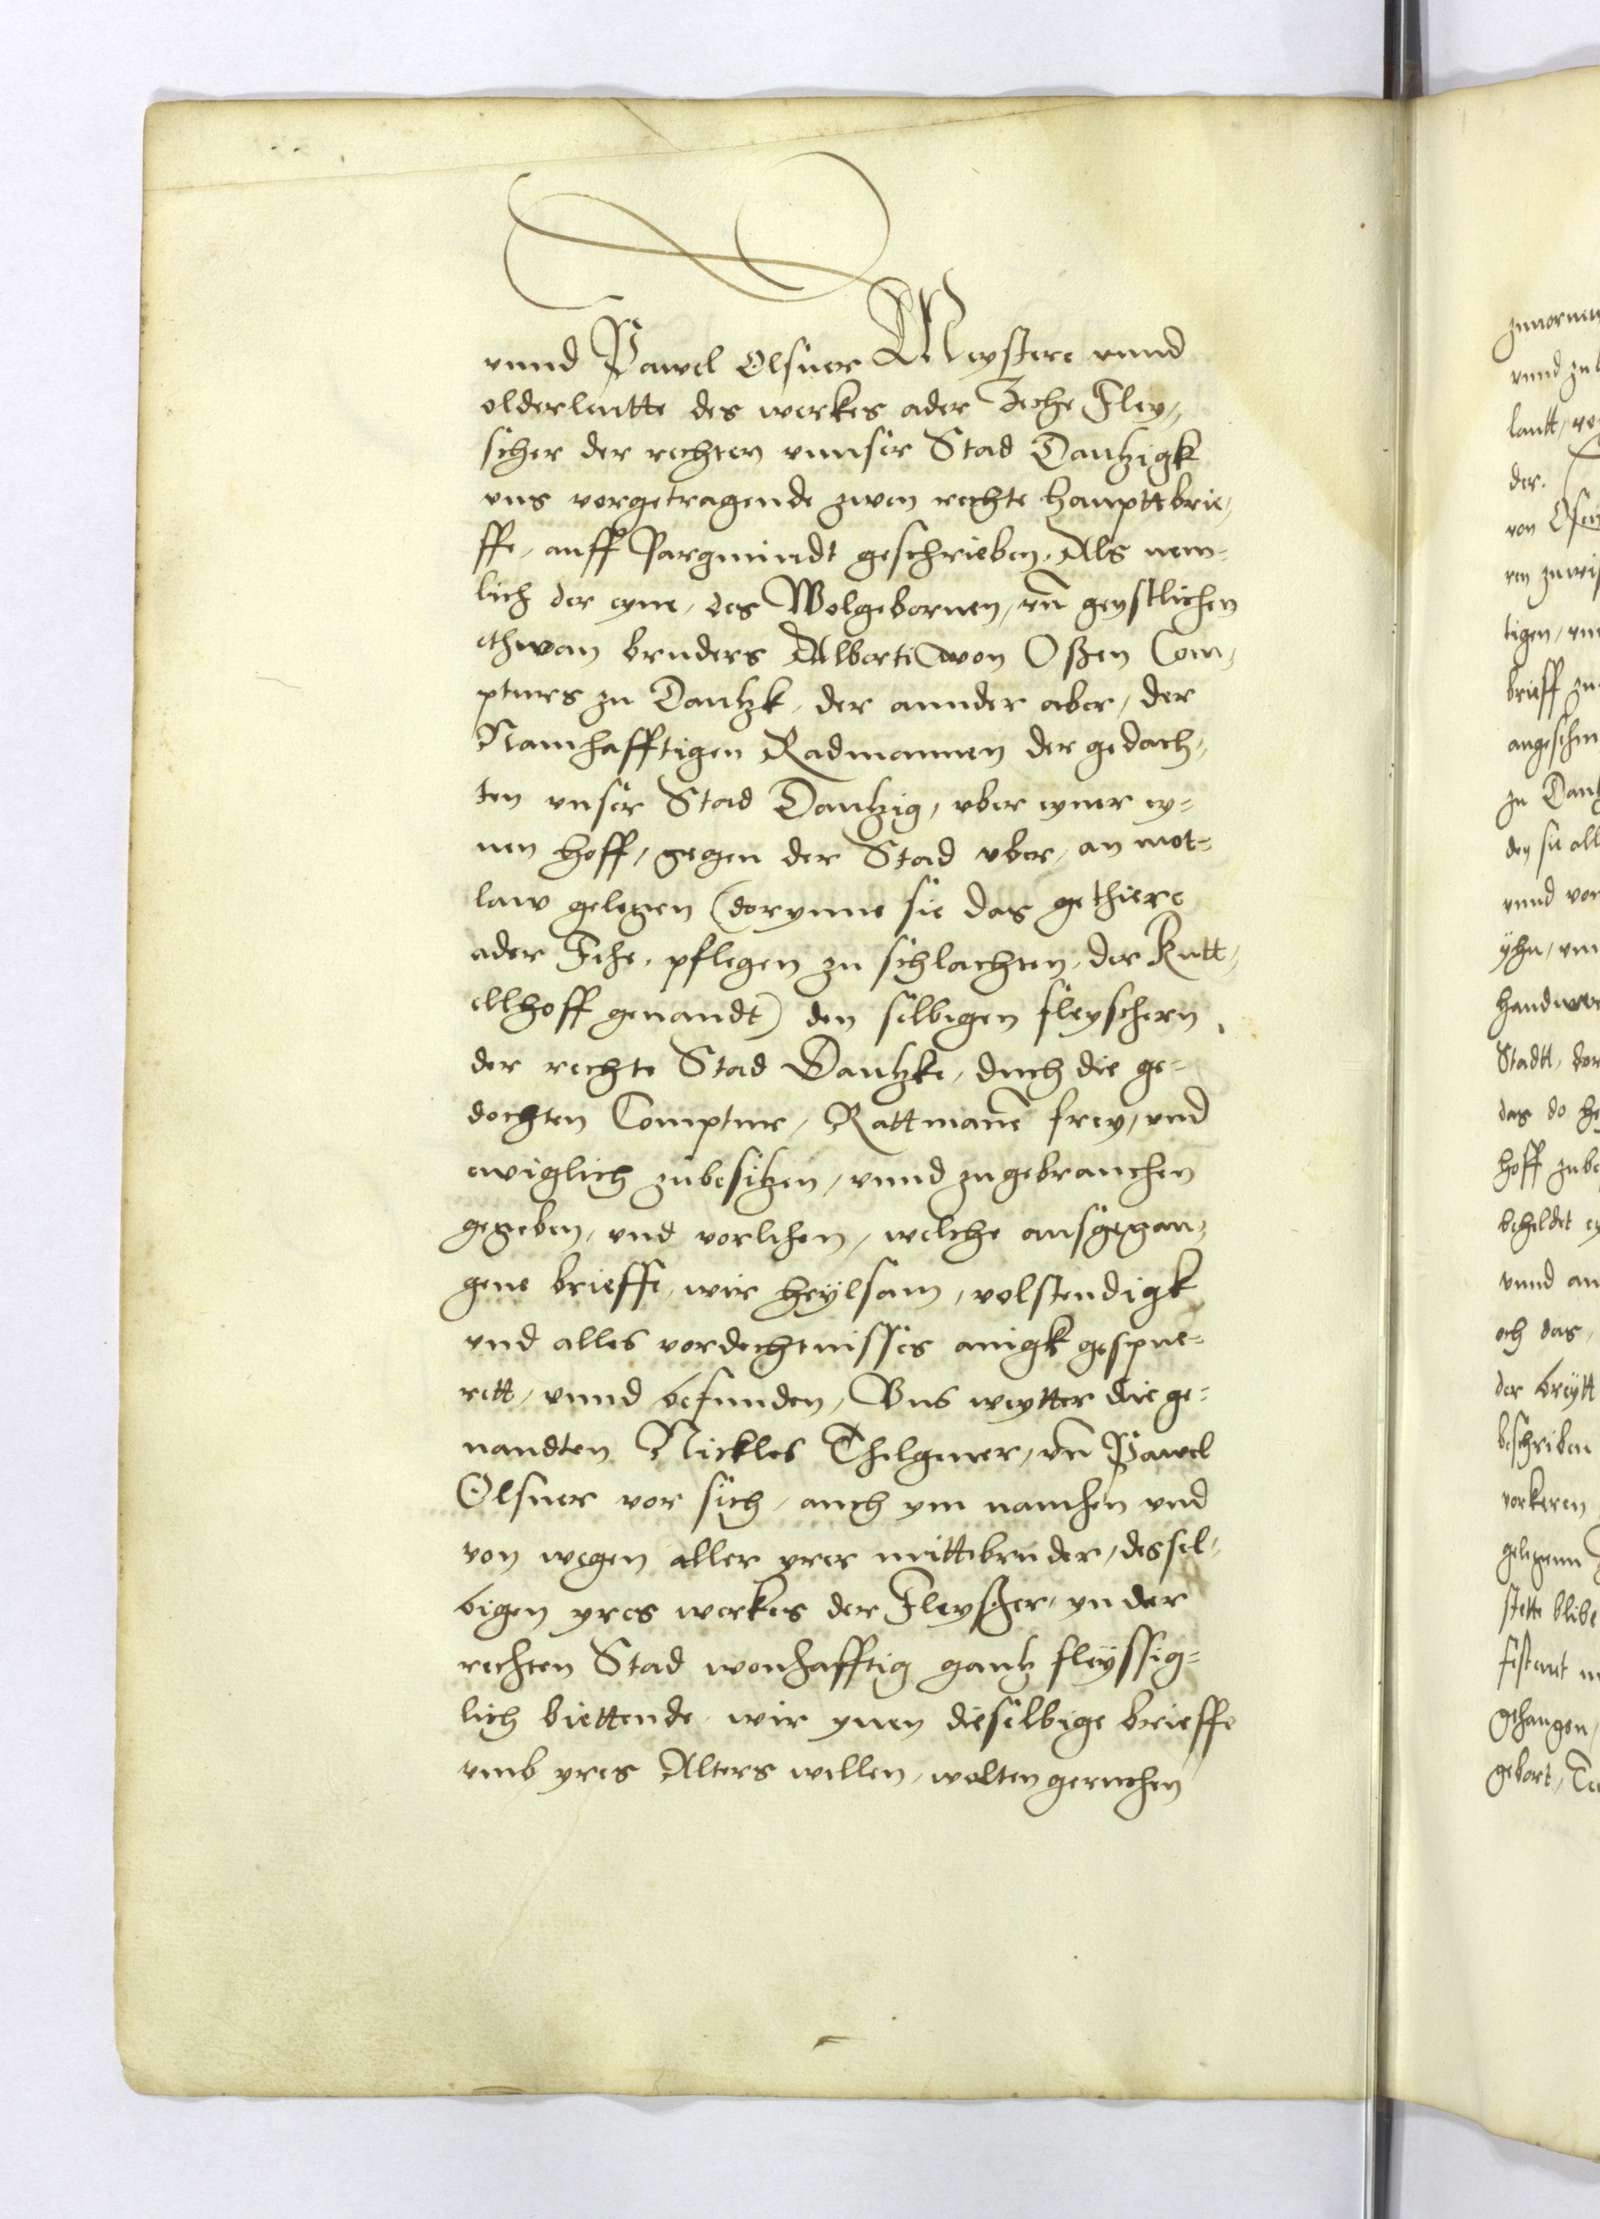 vnnd Pawel Olsner Meystere vnnd
olderlutte des werkes ader Zeche Fley⸗
scher der rechten vnnser Stad Dantzigk
vns vorgetragende zwen rechte hauptt brie⸗
ffe, auff Pargmindt geschrieben, Als nem⸗
lich der eyne, des Wolgebornen, vn̄ geystlichen
ethwan bruders Alberti von Oßen Com⸗
pturs zu Dantzk, der annder aber, der
Namhafftigen Radmannen der gedach⸗
ten vnser Stad Dantzig, vber eyner ey⸗
nen hoff, gegen der Stad vber, an mot⸗
law gelegen (dorynne sie das gethiere
ader Fehe, pflegen zu schlachten, der Kutt⸗
ellhoff genandt) den selbigen fleyschern
der rechte Stad Dantzke, duch die ge⸗
dochten Comptur, Rattmanē frey, vnd
ewiglich zubesitzen, vnnd zugebrauchen
gegeben, vnd vorlihen, welche ausgegan⸗
gene brieffe, wir heylsam, volstendigk
vnd alles vordechtnisses anigk gespue⸗
rett, vnnd befunden, Vns weytter die ge⸗
nandten Nickles Thilgner, vn̄ Pawel
Olsner vor sich, auch ym namhen vnd
von wegen aller yrer mittebruder, dessel⸗
bigen yres werkes der Fleyßer, yn der
rechten Stad wonhafftig gantz fleyssig⸗
lich biettende, wir ynen dieselbige brieffe
vmb yres Alters willen, wolten geruchen
zuvornew
vnnd zu
lantt,
der.
von Osen
ren zuwis
tigen,
brieff zu
angesehn
zu Dant
den sie all
vnnd vor
yhn, vm
handwer
Stadtt, der
das do he
hoff zube
beheldet ey
vnnd an
och das,
der breytt
beschriben
vorkeren
gelegenn
stette blibe
gehangen,
gebort,